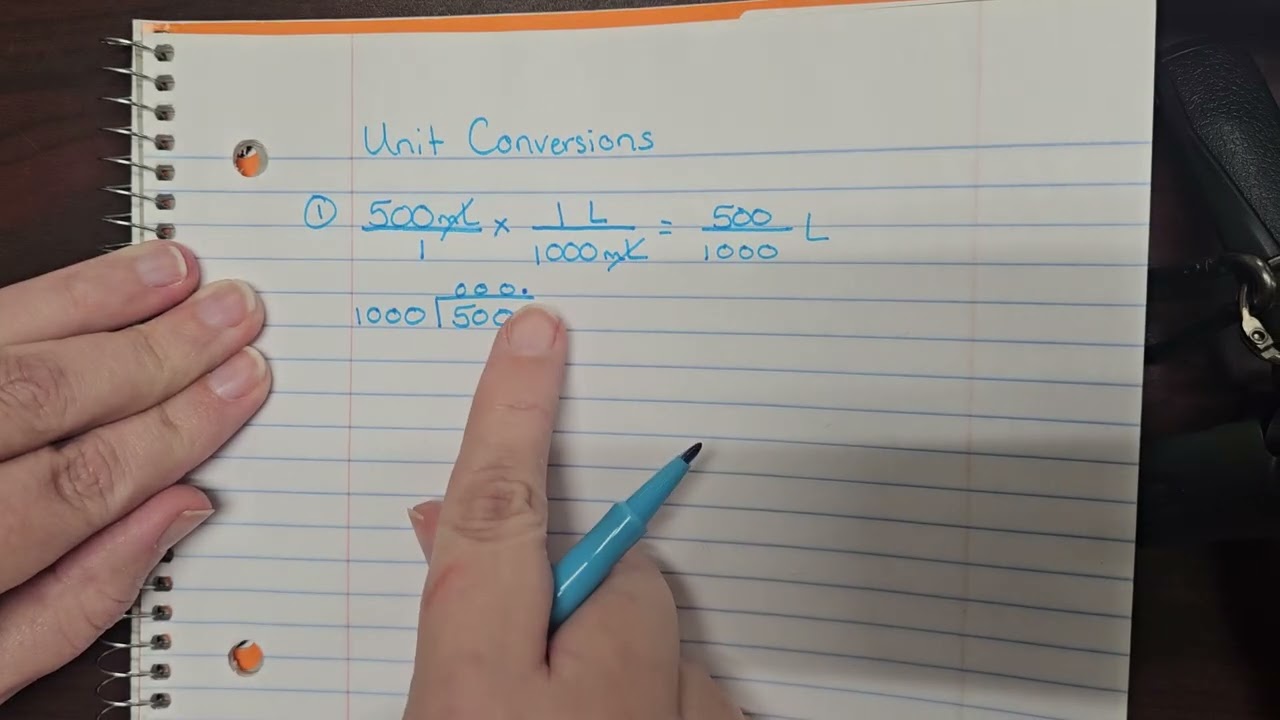 Unit Conversions
① 500mL/1 × 1 L/1000mL = 500/1000 L
000.
1000 500